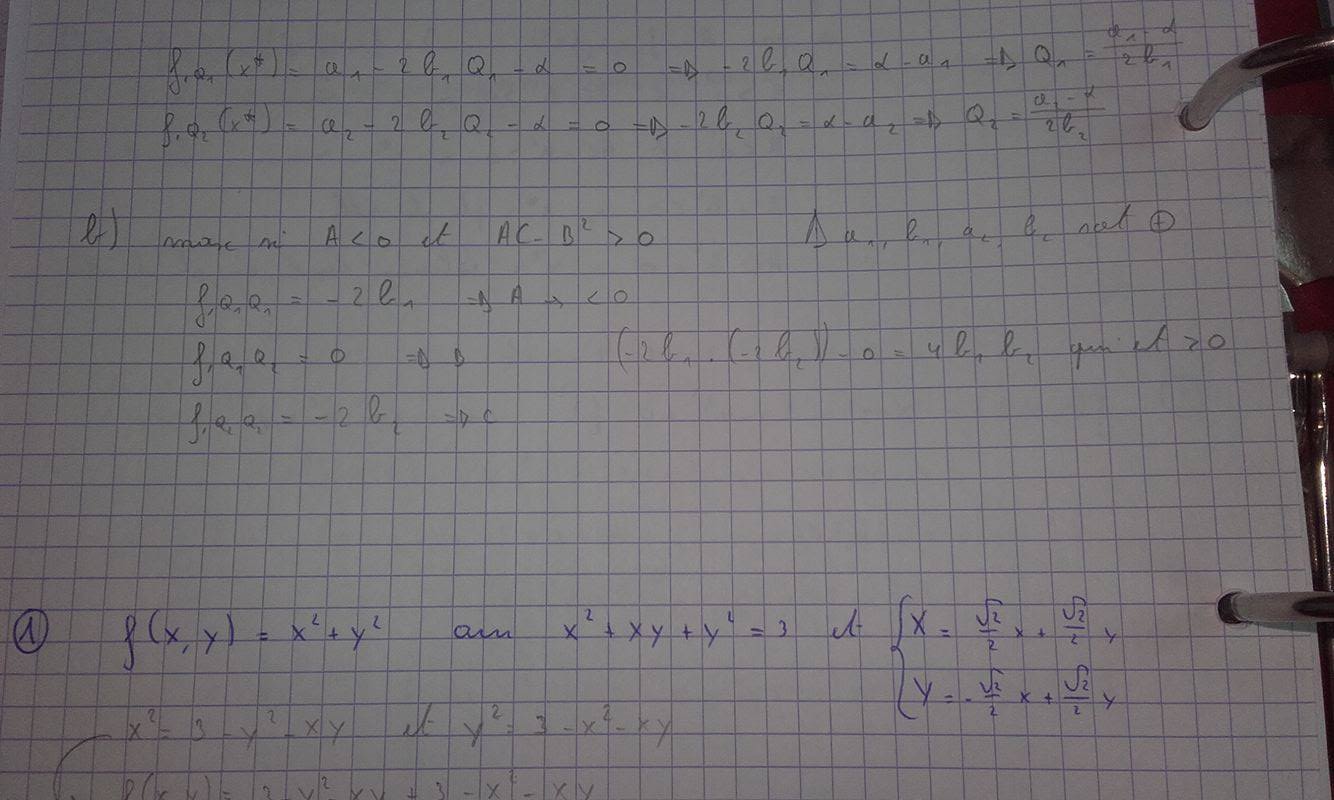 f,Q₁ (x*) = a₁ - 2 b₁ Q₁ - α = 0 ⇒ -2 b₁ Q₁ = α - a₁ ⇒ Q₁ = (a₁ - α)/(2 b₁)
f,Q₂ (x*) = a₂ - 2 b₂ Q₂ - α = 0 ⇒ -2 b₂ Q₂ = α - a₂ ⇒ Q₂ = (a₂ - α)/(2 b₂)
b) max si A < 0 et AC - B² > 0 Δ a₁, b₁, a₂, b₂ sont ⊕
f,Q₁Q₁ = - 2 b₁ ⇒ A → < 0
f,Q₁Q₂ = 0 ⇒ B (-2 b₁ . (-2 b₂)) - 0 = 4 b₁ b₂ qui et > 0
f,Q₂Q₂ = - 2 b₂ ⇒ C
① f(x, y) = x² + y² avec x² + xy + y² = 3 et { X = √2/2 x + √2/2 y
Y = - √2/2 x + √2/2 y
x² = 3 - y² - xy et y² = 3 - x² - xy
f(x, y) = 3 - y² - xy + 3 - x² - xy